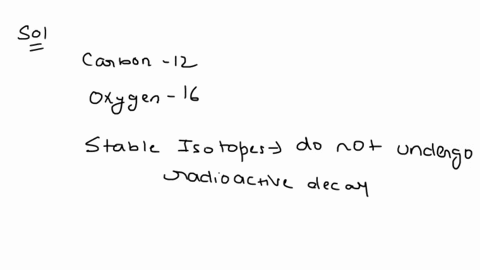 Sol
Carbon - 12
Oxygen - 16
Stable Isotopes → do not undergo
radioactive decay